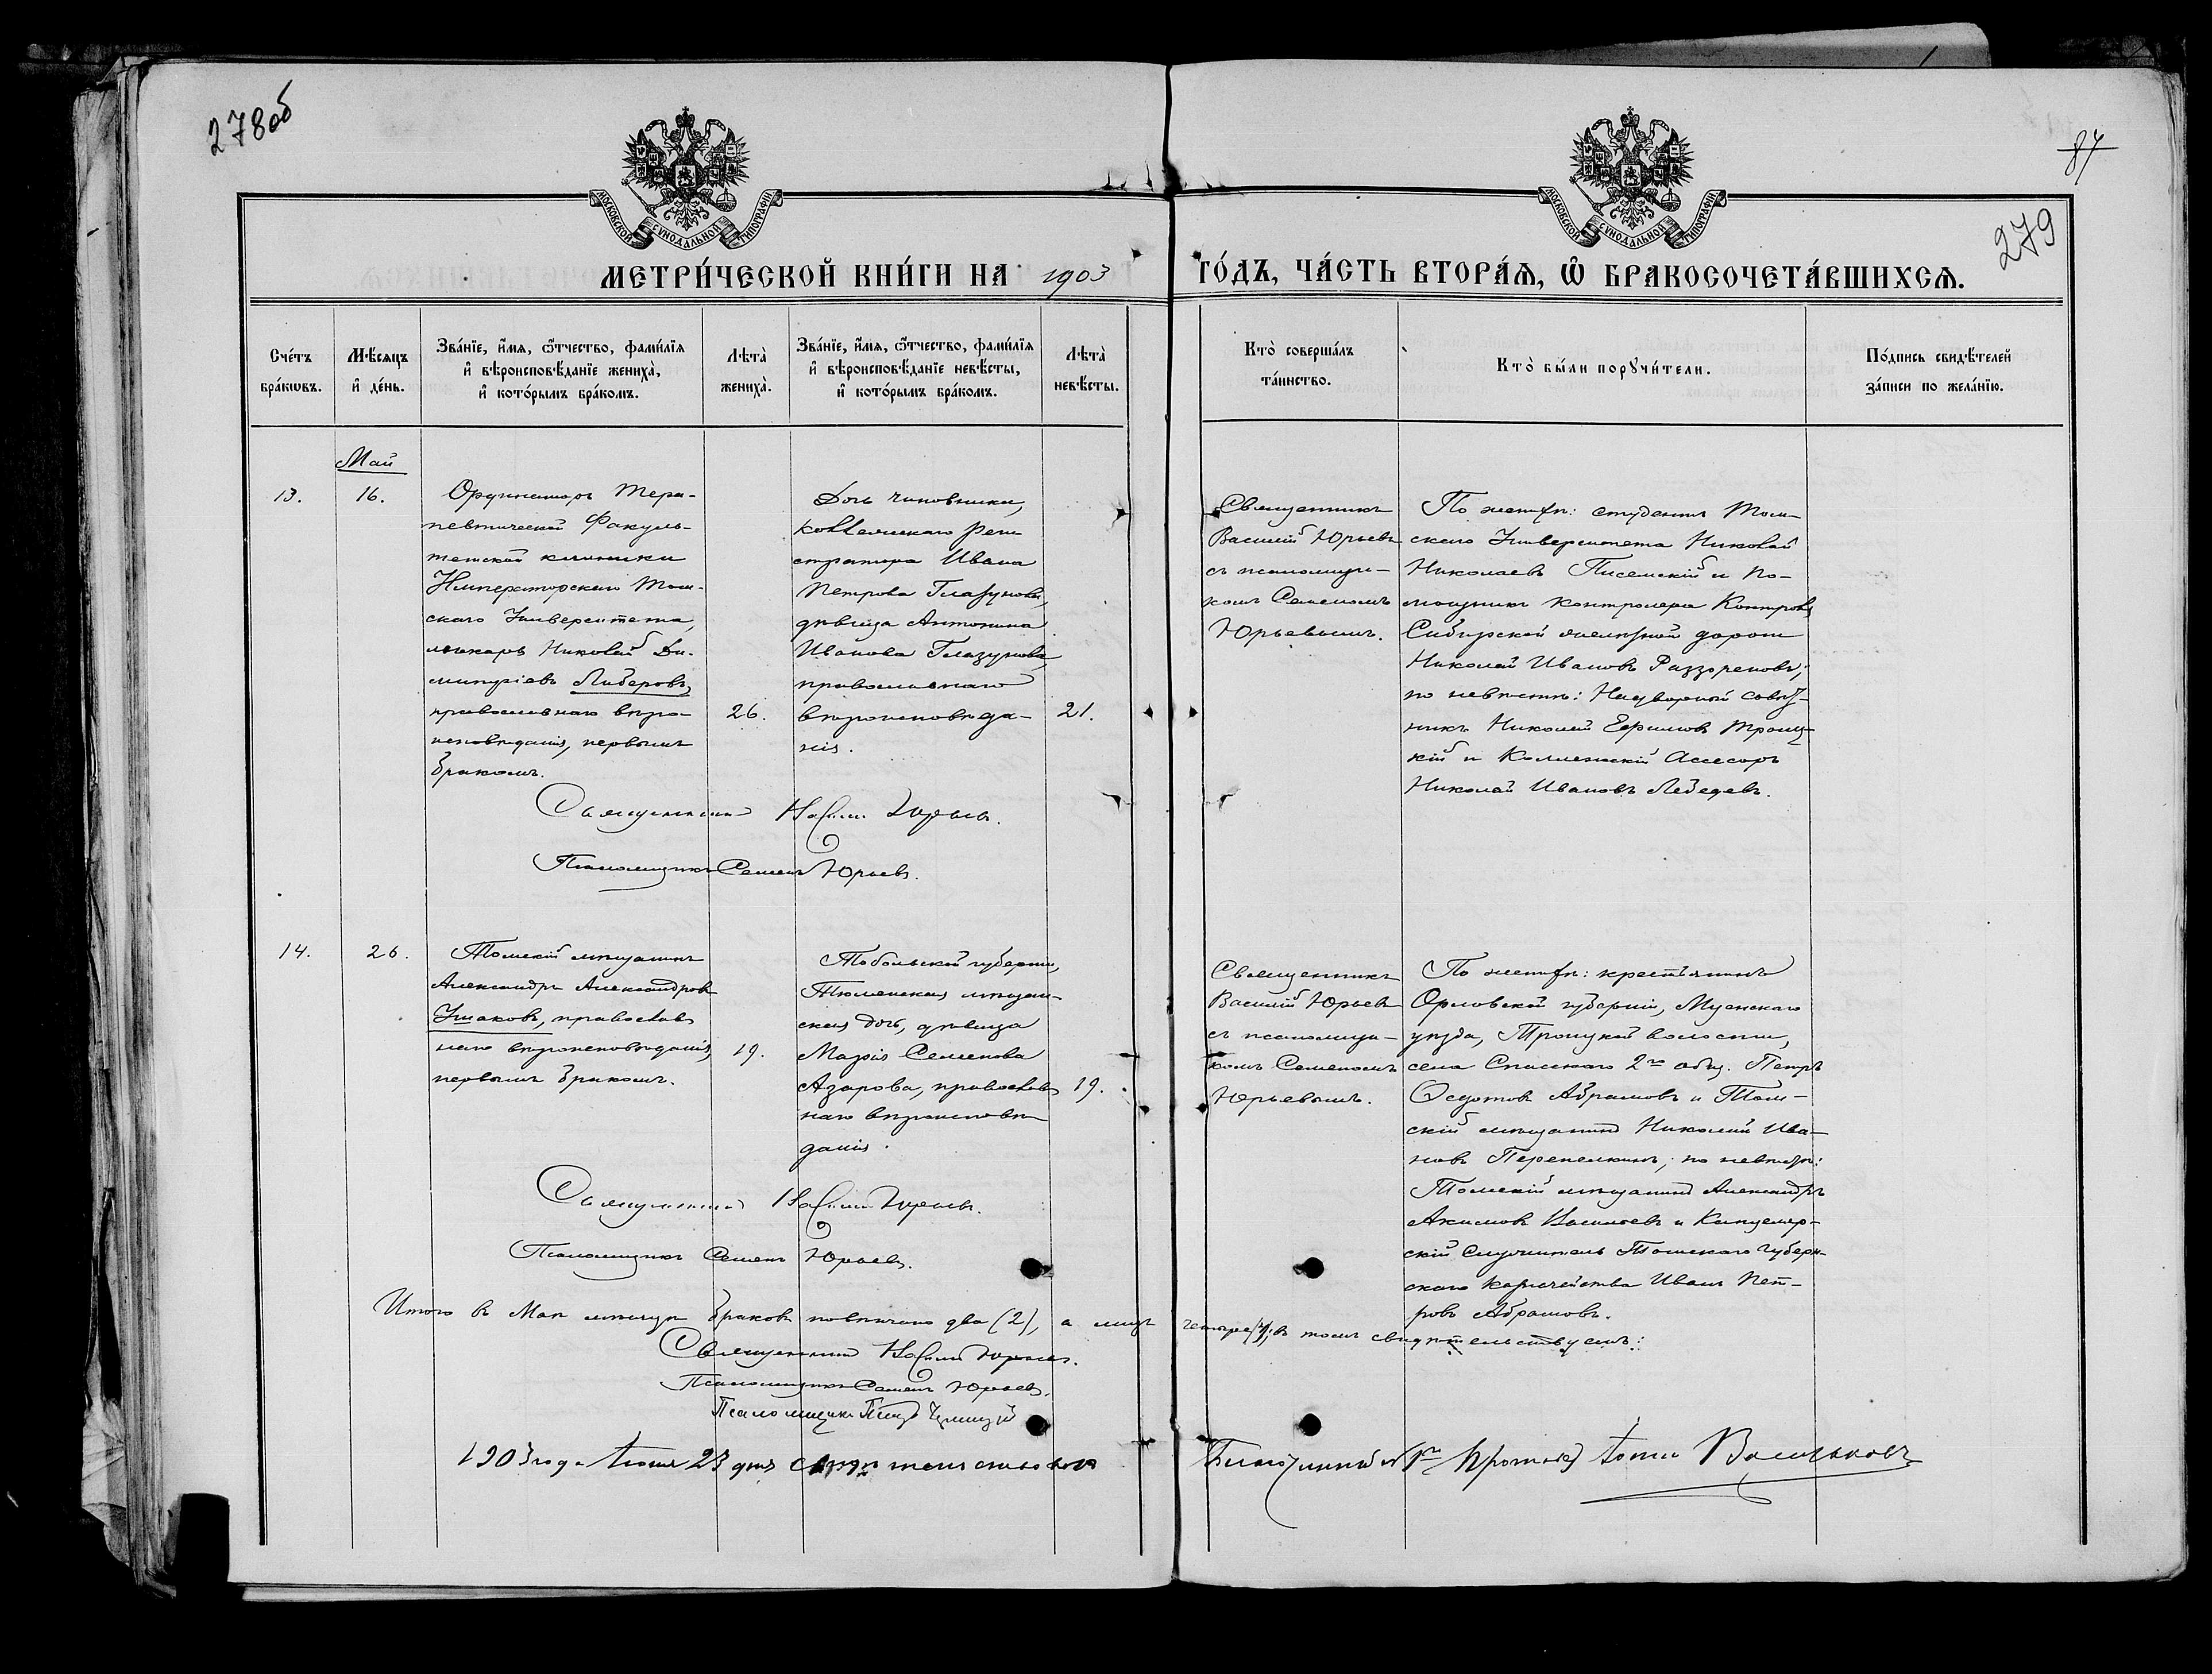 278об
84
279
МОСКОВСКОЙ СУНОДАЛЬНОЙ ТИПОГРАФІИ
МОСКОВСКОЙ СУНОДАЛЬНОЙ ТИПОГРАФІИ
МЕТРИ́ЧЕСКОЙ КНИ́ГИ НА 1903 ГО́ДЪ, ЧА́СТЬ ВТОРА́Ѧ, Ѡ҆ БРАКОСОЧЕТА́ВШИХСѦ.
Сче́тъ
бра́кѡвъ.
Мѣ́сѧцъ
и҆ де́нь.
Зва́нїе, и҆́мѧ, ѻ҆́тчество, фами́лїѧ
и҆ вѣроисповѣ́данїе жениха̀,
и҆ кото́рымъ бра́комъ.
Лѣта̀
жениха̀.
Зва́нїе, и҆́мѧ, ѻ҆́тчество, фами́лїѧ
и҆ вѣроисповѣ́данїе невѣ́сты,
и҆ кото́рымъ бра́комъ.
Лѣта̀
невѣ́сты.
Кто̀ соверша́лъ
та́инство.
Кто̀ бы́ли порꙋчи́тели.
По́дпись свидѣ́телей
за́писи по жела́нїю.
Май
13.
16.
Ординаторъ Тера-
певтической Факуль-
тетской клиники
Императорскаго Том-
скаго Университета,
лѣкарь Николай Ди-
митріевъ Либеровъ,
православнаго вѣро-
исповѣданія, первымъ
бракомъ.
26.
Дочь чиновника,
Коллежскаго Реги-
стратора Ивана
Петрова Глазунова,
дѣвица Антонина
Иванова Глазунова,
православнаго
вѣроисповѣда-
нія.
21.
Священникъ
Василій Юрьевъ
съ псаломщи-
комъ Семеномъ
Юрьевымъ.
По женихѣ: студентъ Том-
скаго Университета Николай
Николаевъ Писемскій и По-
мощникъ контролера Контроля
Сибирской желѣзной дороги
Николай Ивановъ Раззореновъ;
по невѣстѣ: Надворный Совѣт-
никъ Николай Ефимовъ Троиц-
кій и Коллежскій Ассесоръ
Николай Ивановъ Лебедевъ.
Священникъ Василій Юрьевъ.
Псаломщикъ Семенъ Юрьевъ.
14.
26.
Томскій мѣщанинъ
Александръ Александровъ
Ушаковъ, православ
наго вѣроисповѣданія,
первымъ бракомъ.
19.
Тобольской губерніи,
Тюменская мѣщан-
ская дочь, дѣвица
Марія Семенова
Азарова, православ
наго вѣроисповѣ
данія.
19.
Священникъ
Василій Юрьевъ
съ псаломщи-
комъ Семеномъ
Юрьевымъ.
По женихѣ: крестьянинъ
Орловской губерніи, Мценскаго
уѣзда, Троицкой волости,
села Спасскаго 2го общ. Петръ
Абрамовъ и Том-
скій мѣщанинъ Николай Ива-
новъ Перепелкинъ; по невѣстѣ:
Томскій мѣщанинъ Александръ
Акимовъ Васильевъ и Канцеляр-
скій Служитель Томскаго Губерн-
скаго Казначейства Иванъ Пет-
ровъ Абрамовъ.
Священникъ Василій Юрьевъ.
Псаломщикъ Семенъ Юрьевъ.
Итого въ Маѣ мѣсяцѣ браковъ повѣнчано два (2), а лицъ четыре (4); въ томъ свидѣтельствуемъ:
Священникъ Василій Юрьевъ.
Псаломщикъ Семенъ Юрьевъ.
Псаломщикъ
1903 года Іюня 23 дня свидѣтельствовалъ
Благочинный № 1го Протоіерей Васильковъ